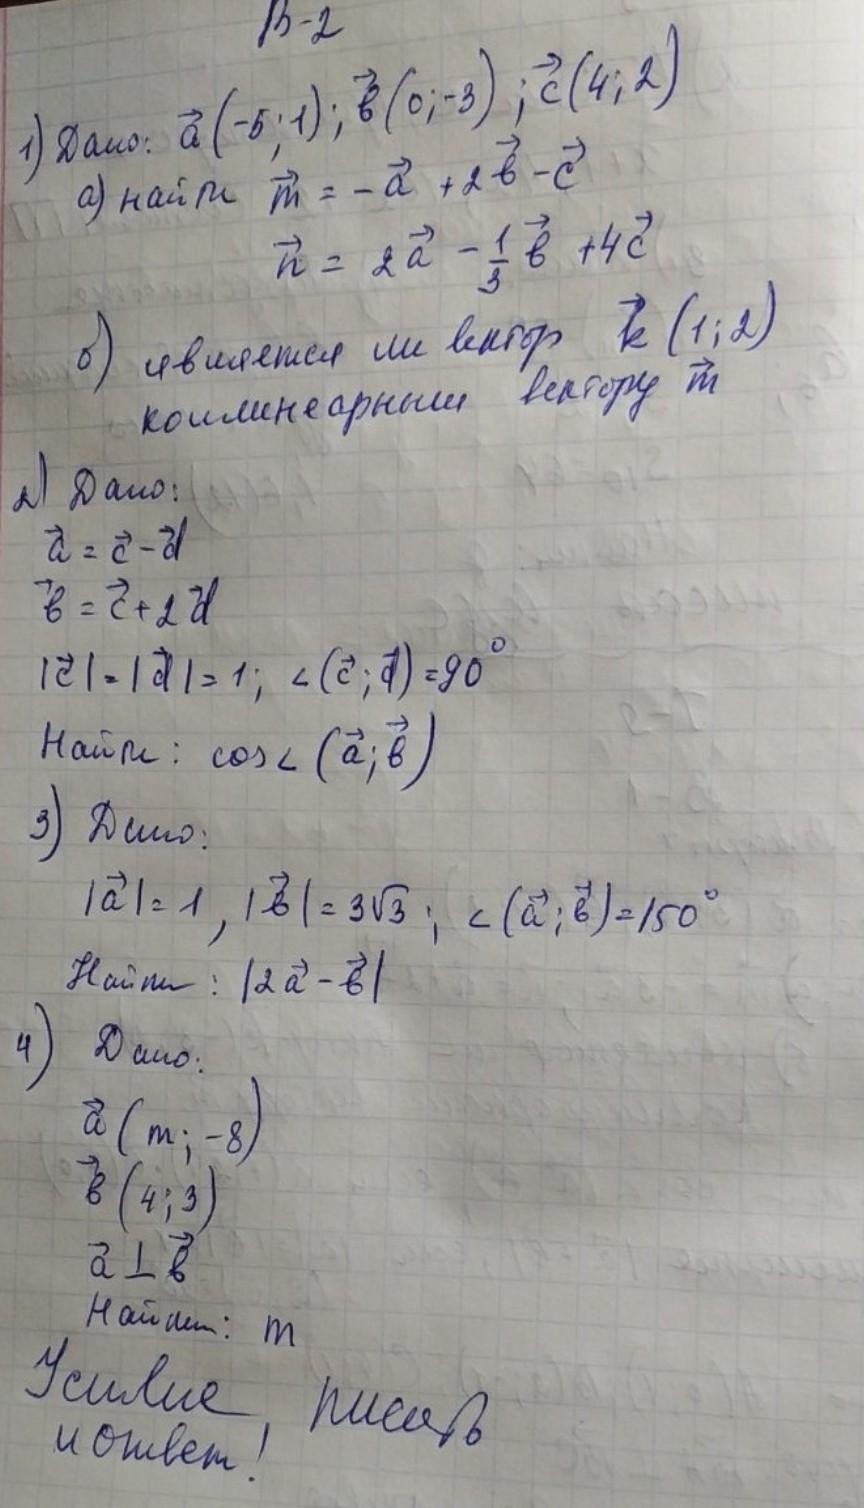 В-2
1) Дано: a⃗(-5; 1); b⃗(0; -3); c⃗(4; 2)
а) найти m⃗ = -a⃗ + 2b⃗ - c⃗
n⃗ = 2a⃗ - 1/3 b⃗ + 4c⃗
б) является ли вектор k⃗(1; 2)
коллинеарным вектору m⃗
2) Дано:
a⃗ = c⃗ - d⃗
b⃗ = c⃗ + 2d⃗
|c⃗| = |d⃗| = 1; ∠(c⃗; d⃗) = 90°
Найти: cos∠(a⃗; b⃗)
3) Дано:
|a⃗| = 1, |b⃗| = 3√3; ∠(a⃗; b⃗) = 150°
Найти: |2a⃗ - b⃗|
4) Дано:
a⃗(m; -8)
b⃗(4; 3)
a⃗ ⊥ b⃗
Найти: m
писать
и ответ!